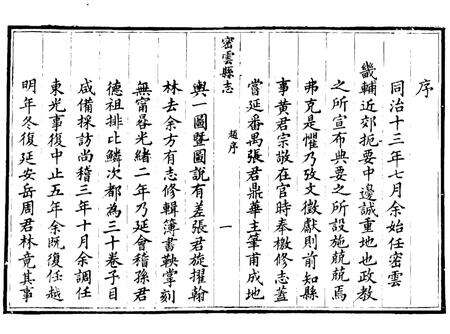 序
同治十三年七月余始任密雲
畿輔近郊扼要中邊誠重地也政教
之所宣布典要之所設施兢兢焉
弗克是懼乃攷文徵獻則前知縣
事黃君宗敬在官時奉檄修志蓋
嘗延番禺張君鼎華主筆甫成地
密雲縣志 題序 一
輿一圖暨圖說有差張君旋擢翰
林去余方有志修輯簿書鞅掌刻
無甯晷光緒二年乃延會稽孫君
德祖排比鱗次都為三十卷子目
咸備採訪尚稽三年十月余調任
東光事復中止五年余既復任越
明年冬復延安岳周君林竟其事